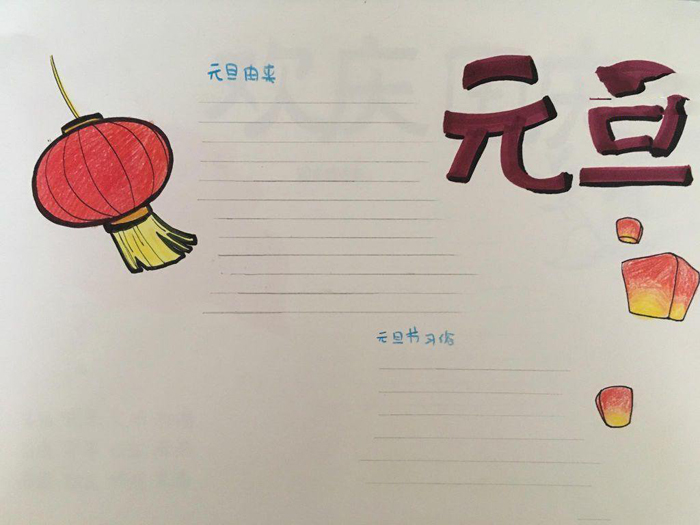 元旦由来
元旦
元旦节习俗